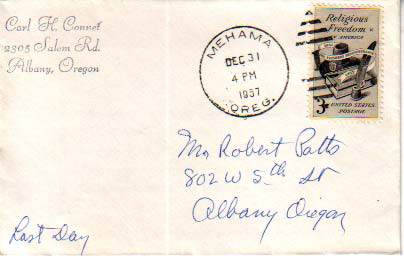 Carl H. Connet
2305 Salem Rd.
Albany, Oregon
MEHAMA
DEC 31
4 PM
1957
OREG.
Religious
Freedom
IN AMERICA
3¢
UNITED STATES
POSTAGE
Mr Robert Potts
802 W 5th St
Albany Oregon
Last Day